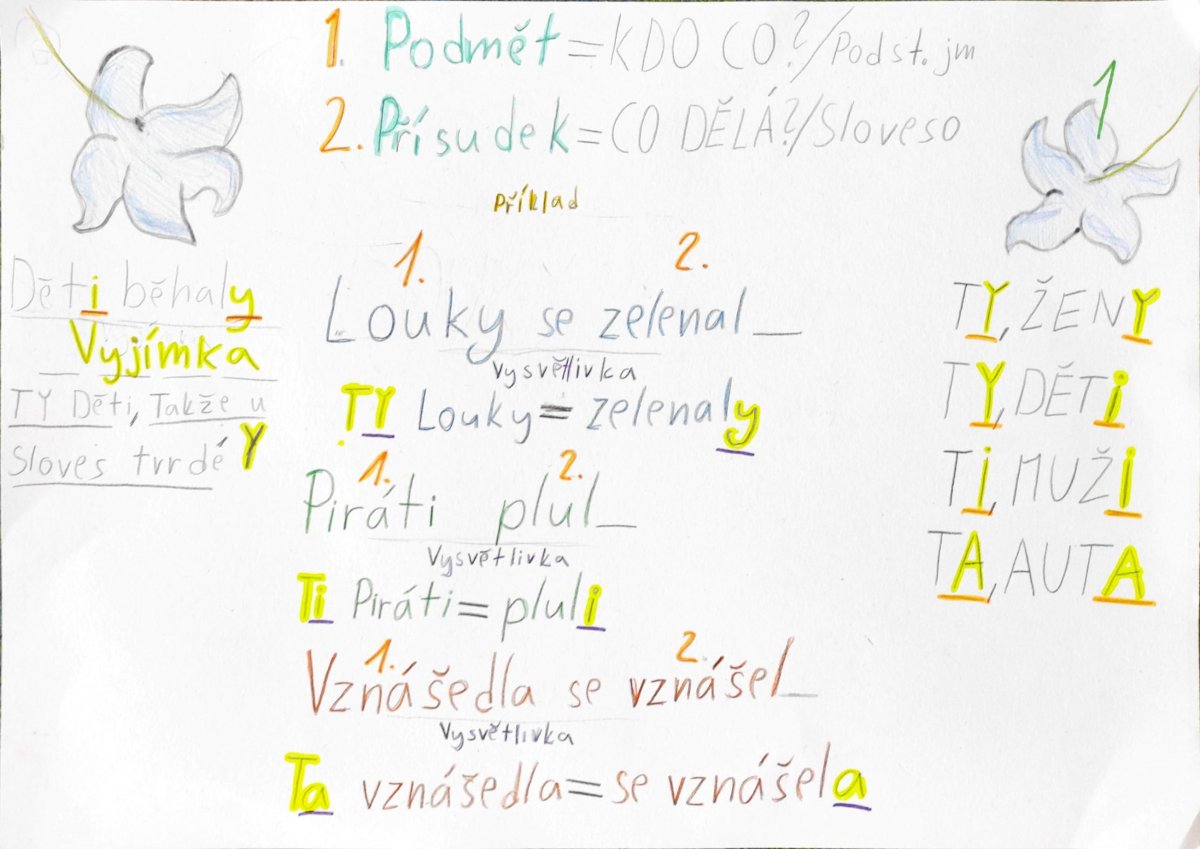 1. Podmět=KDO CO?/Podst. jm
2. Přísudek=CO DĚLÁ?/Sloveso
Příklad
1. 2.
Louky se zelenal_
Vysvětlivka
TY Louky=zelenaly
1. 2.
Piráti plul_
Vysvětlivka
Ti Piráti=pluli
1. 2.
Vznášedla se vznášel_
Vysvětlivka
Ta vznášedla=se vznášela
Děti běhaly
Vyjímka
TY Děti, Takže u
Sloves tvrdé Y
1
TY, ŽENY
TY, DĚTi
Ti, MUŽi
TA, AUTA